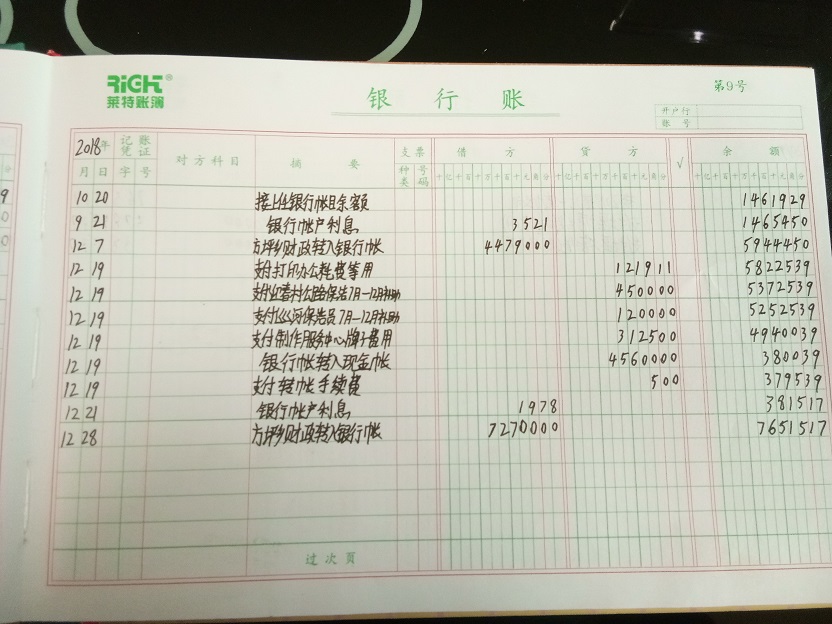 RiGHT®
莱特账簿
银行账
第9号
开户行
账号
2018年 记账凭证 对方科目 摘要 支票 借方 贷方 √ 余额
月 日 字 号 种类 号码 十亿千百十万千百十元角分 十亿千百十万千百十元角分 十亿千百十万千百十元角分
10 20 接上年银行帐目余额 1461929
9 21 银行帐户利息 3521 1465450
12 7 方坪乡财政转入银行帐 4479000 5944450
12 19 支付打印办公耗费等用 121911 5822539
12 19 支付迎春村公路保洁7月—12月补助 450000 5372539
12 19 支付巡河保洁员7月—12月补助 120000 5252539
12 19 支付制作服务中心牌子费用 312500 4940039
12 19 银行帐转入现金帐 4560000 380039
12 19 支付转帐手续费 500 379539
12 21 银行帐户利息 1978 381517
12 28 方坪乡财政转入银行帐 7270000 7651517
过次頁